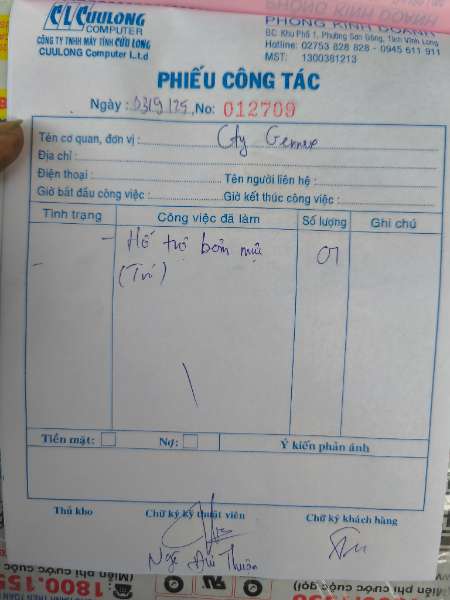 CLC CUULONG
COMPUTER
CÔNG TY TNHH MÁY TÍNH CỬU LONG
CUULONG Computer L.t.d
PHÒNG KINH DOANH
ĐC: Khu Phố 1, Phường Sơn Đông, Tỉnh Vĩnh Long
Hotline: 02753 828 828 - 0945 611 911
MST: 1300381213
PHIẾU CÔNG TÁC
Ngày: 03/9/25, No: 012709
Tên cơ quan, đơn vị: Cty
Địa chỉ:
Điện thoại: Tên người liên hệ:
Giờ bắt đầu công việc: Giờ kết thúc công việc:
Tình trạng Công việc đã làm Số lượng Ghi chú
- Hỗ trợ bơm mực 01
(Trí)
Tiền mặt: Nợ: Ý kiến phản ánh
Thủ kho Chữ ký kỹ thuật viên Chữ ký khách hàng
Thuận
(Miễn phí cước cuộc gọi)
1800.155